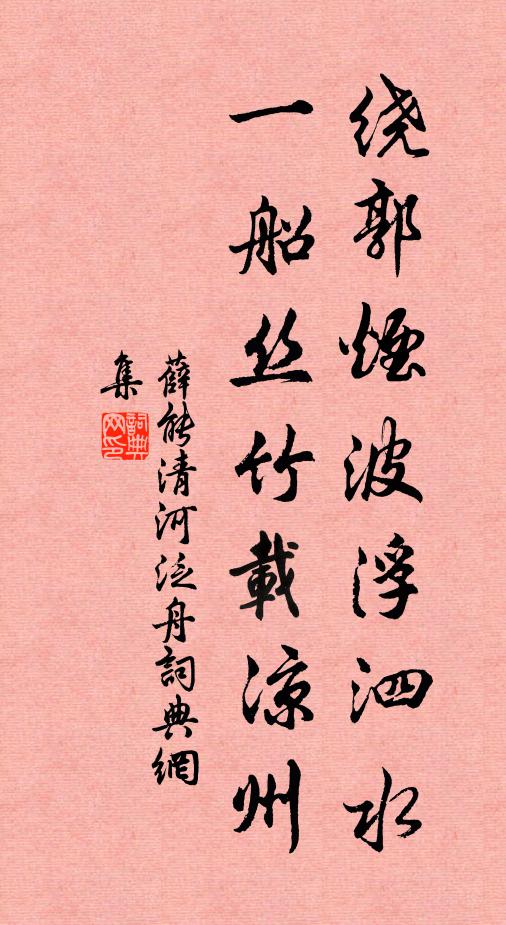 绕郭烟波浮泗水
一船丝竹载凉州
薛能清河泛舟詞典網
集
詞典网印